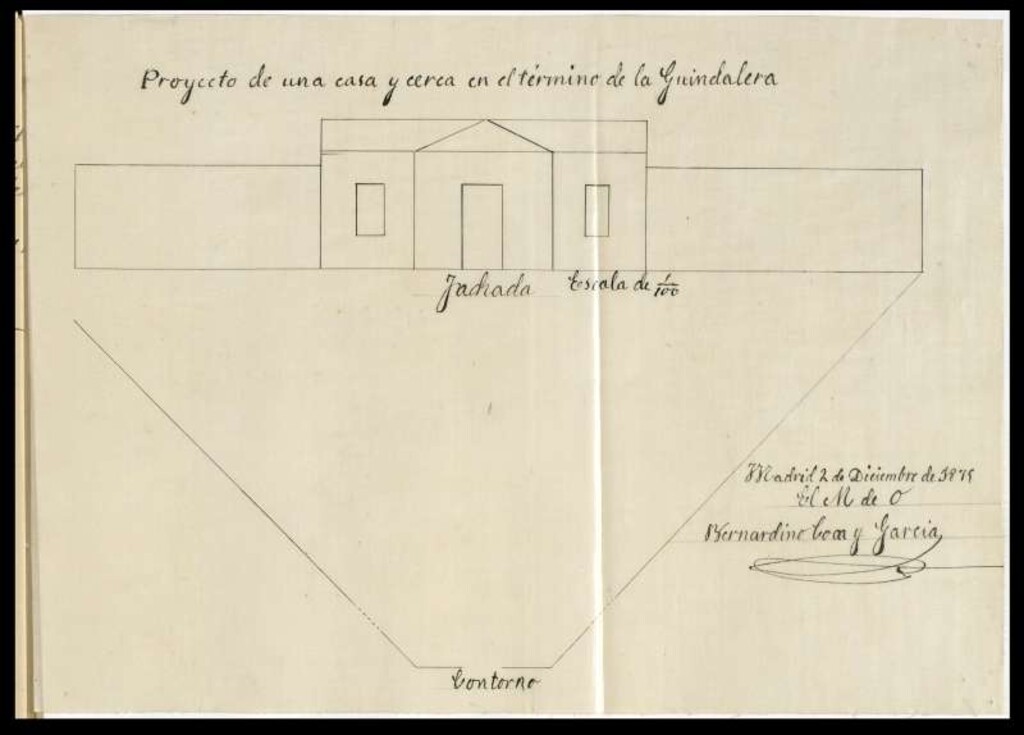 Proyecto de una casa y cerca en el término de la Guindalera
Fachada Escala de 1/100
Madrid 2 de Diciembre de
El M de O
Bernardino y Garcia
Contorno